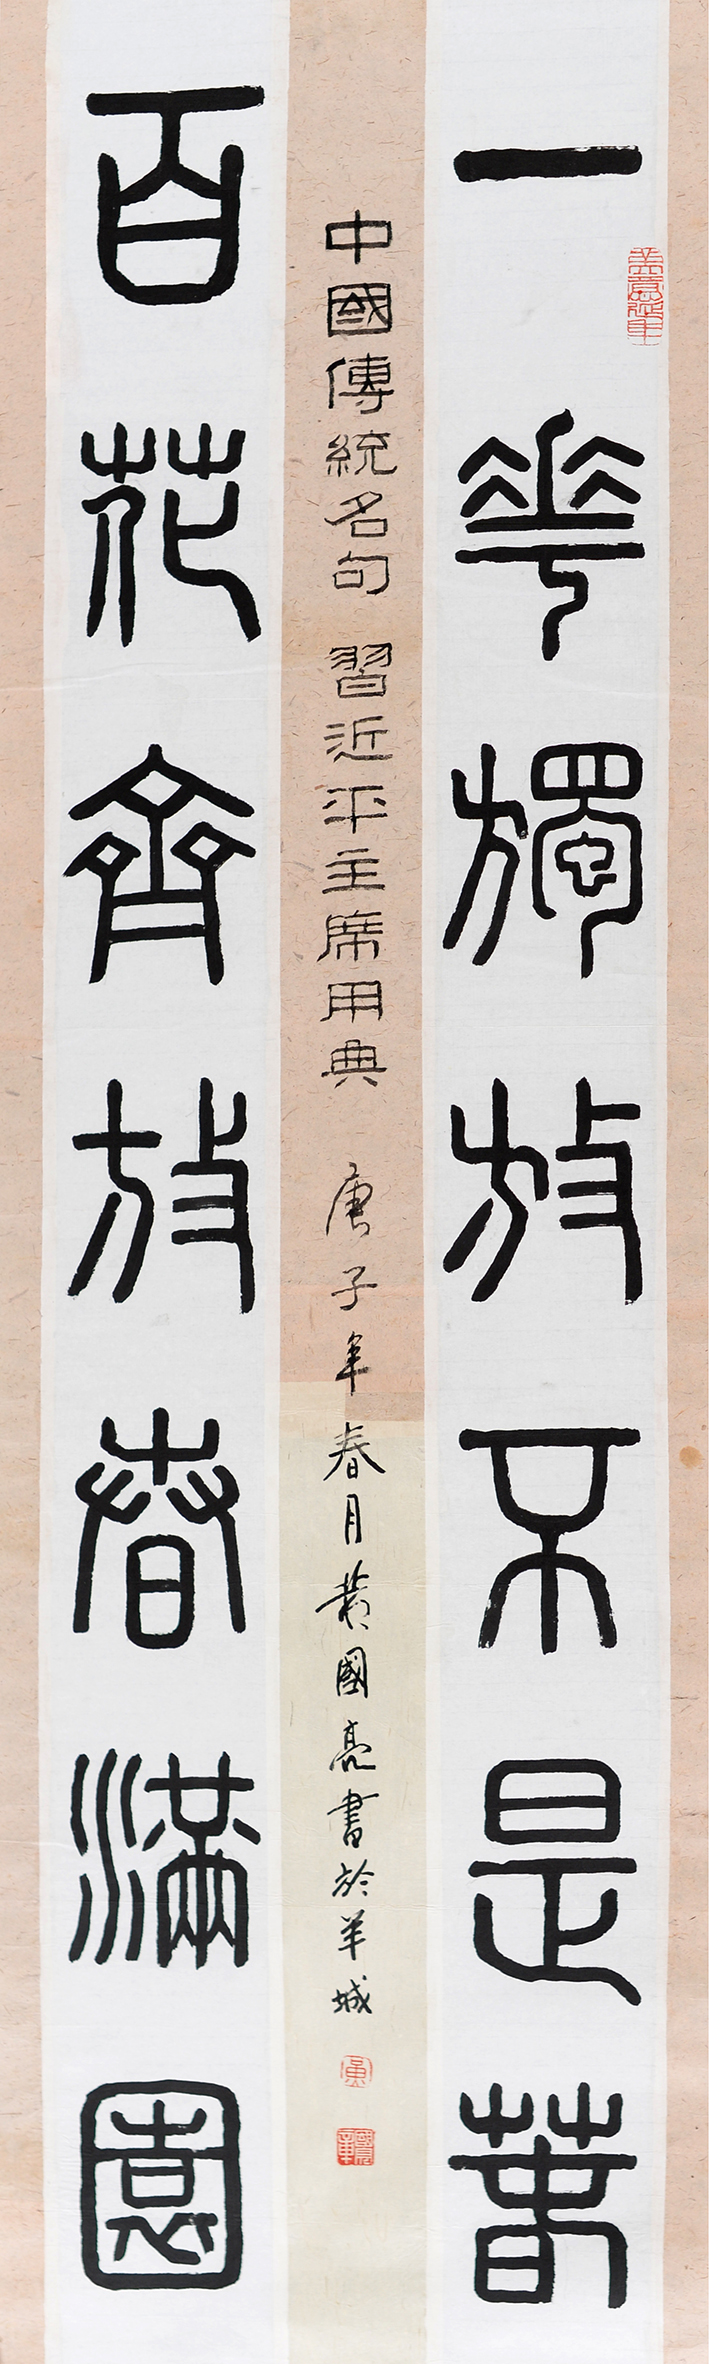 一華獨放不是春
百花齊放春滿園
中國傳統名句 習近平主席用典 庚子年春月黃國亮書於羊城
美意延年
黃